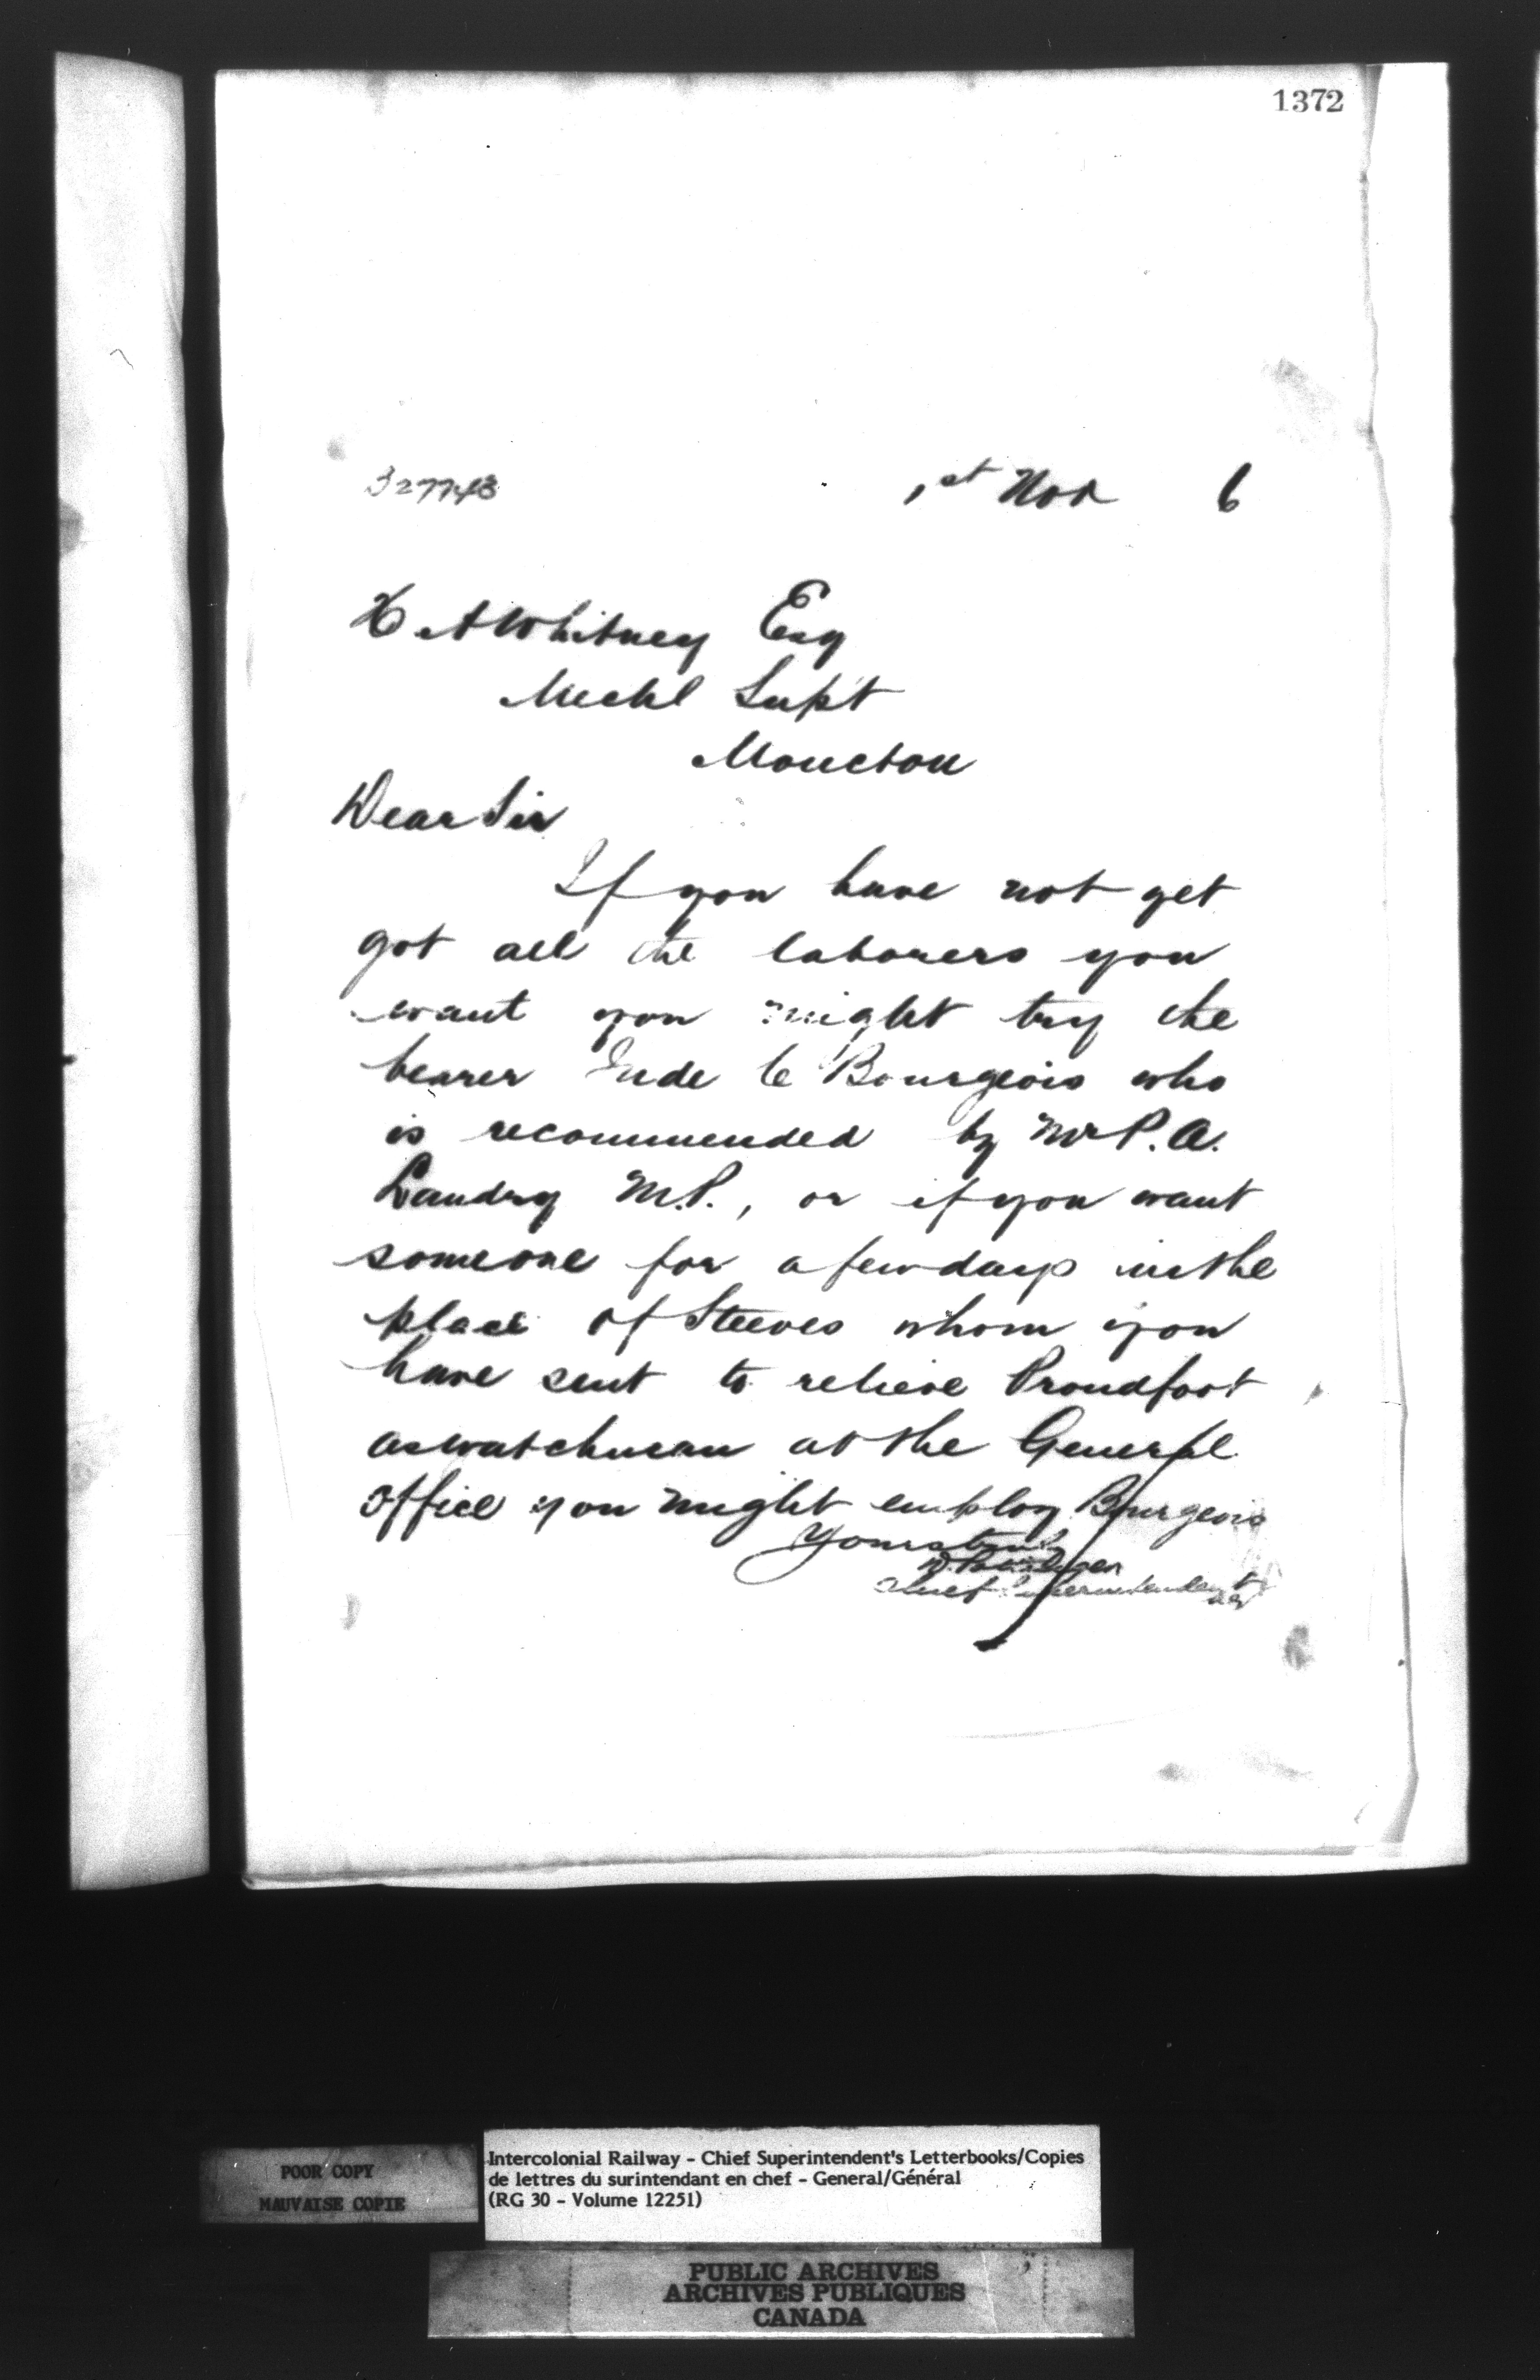 1372
32774B
1st Nov 6
H A Whitney Esq
Mechl Supt
Moncton
Dear Sir
If you have not yet
got all the laborers you
want you might try the
bearer Jude C Bourgeois who
is recommended by Mr P. A.
Landry M.P., or if you want
someone for a few days in the
place of Steeves whom you
have sent to relieve Proudfoot
as watchman at the General
Office you might employ Bourgeois
Yours truly
D. Pottinger
Chief Superintendent
POOR COPY
MAUVAISE COPIE
Intercolonial Railway - Chief Superintendent's Letterbooks/Copies
de lettres du surintendant en chef - General/Général
(RG 30 - Volume 12251)
PUBLIC ARCHIVES
ARCHIVES PUBLIQUES
CANADA